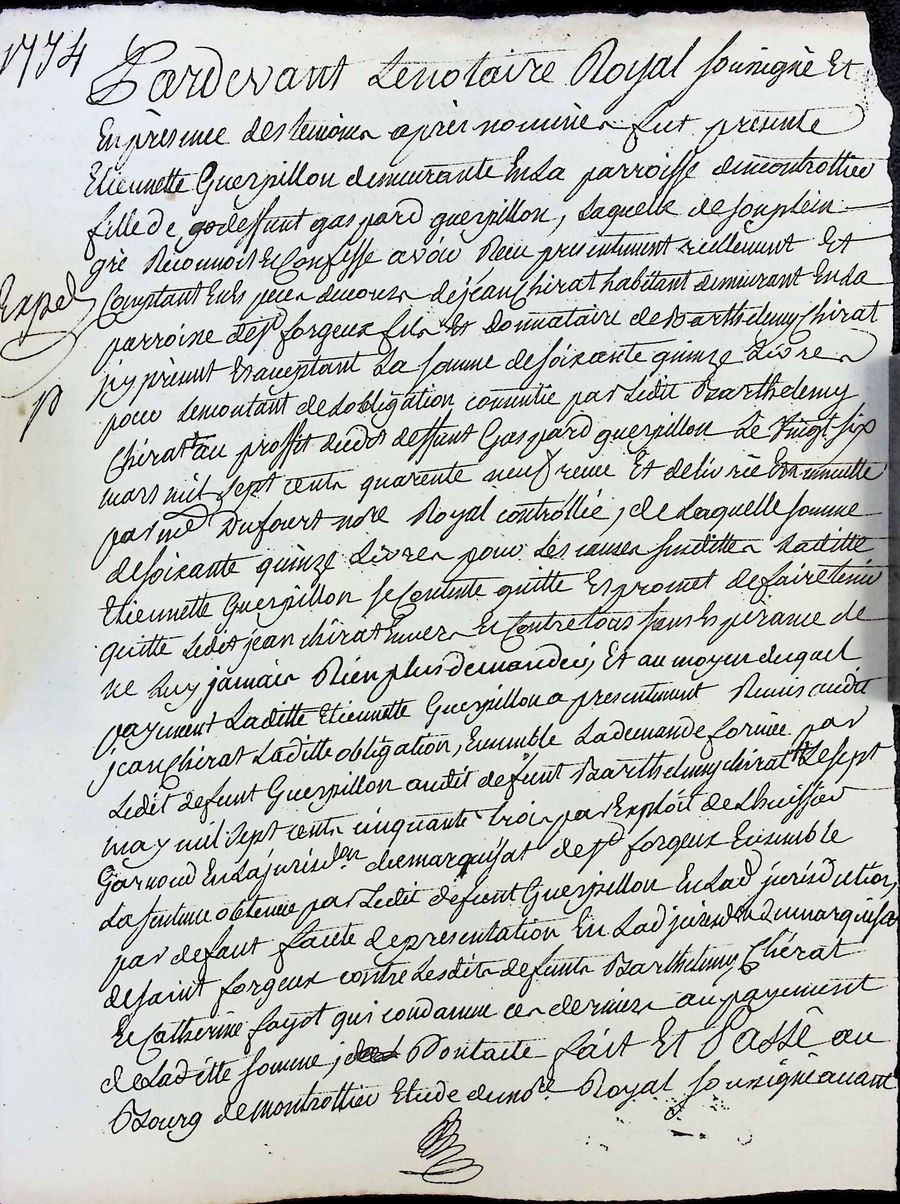 1774
Pardevant Le notaire Royal Soussigné Et
En présence des temoins après nommés fut presente
Etiennette Guerpillon demeurante En La parroisse de montrottier
fille de go deffunt gaspard guerpillon, Laquelle de son plein
gré Reconnoit Et Confesse avoir Recu presentement réellement Et
Exped
Comptant En Especes de cours de jean Chirat habitant demeurant En La
parroisse de St forgeux fils Et Donnataire de Barthelemy Chirat
icy présent Et acceptant La somme de soixante quinze Livres
p
pour Le montant de Lobligation consentie par Ledit Barthelemy
Chirat au proffit dudit deffunt Gaspard guerpillon Le Vingt six
mars mil sept cents quarente neuf reçue Et delivrée En minutte
par me Dufourt nore Royal controllée, de Laquelle somme
de soixante quinze Livres pour Les causes susdittes Laditte
Etiennette Guerpillon se Contente quitte Et promet de faire tenir
quitte Ledit jean chirat Envers Et Contre tous sans Espérance de
ne Luy jamais Rien plus demander, Et au moyen duquel
payement Laditte Etiennette Guerpillon a presentement Remis audit
jean Chirat Laditte obligation, Ensemble La demande formée par
Ledit defunt Guerpillon audit defunt Barthelemy chirat Le sept
may mil sept cents cinquante trois par Exploit de Lhuissier
Garnoud En La jurisdon du marquisat de St forgeux Ensemble
La sentence obtenue par Ledit defunt Guerpillon En Lad jurisdiction,
par defaut faute de presentation En Lad jurisdon du marquisat
de saint forgeux contre Lesdits defunts Barthelemy Chérat
Et Catherine fayot qui condamne ces derniers au payement
de Laditte somme, Dont acte fait Et Passé au
Bourg de montrottier Etude du nore Royal Soussigné avant